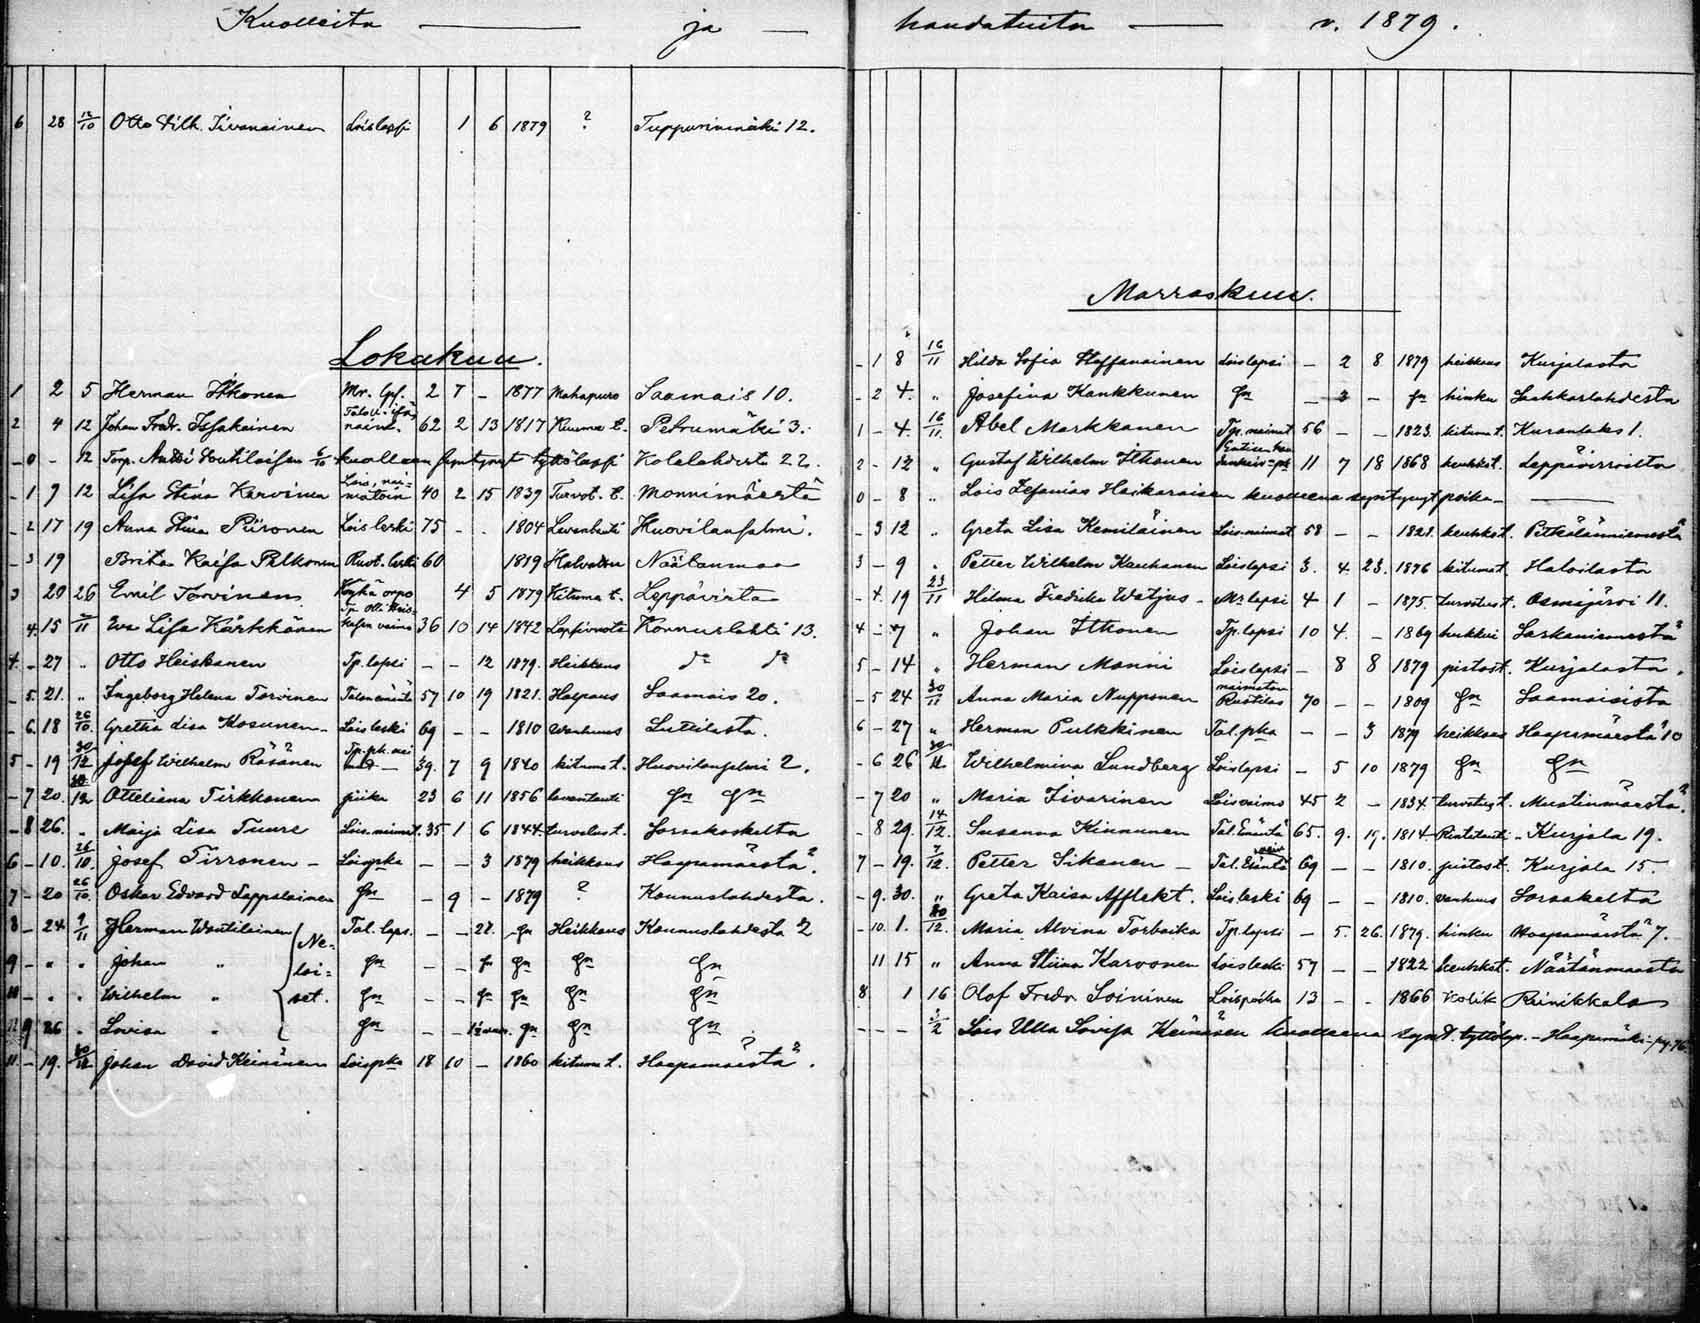 Kuolleita — ja — haudatuita — v. 1879.
6 28 12/10 Otto Vilh. Iivanainen Loislapsi 1 6 1879 ? Tuppurinmäki 12.
Lokakuu.
1 2 5 Herman Itkonen Mr. lps. 2 7 - 1877 Mahapuro Saamais 10.
2 4 12 Johan Fredr. 62 2 13 1817 Petrumäki 3.
- 0 - 12 Torp. kuolleena syntynyt tyttölapsi 22.
- 1 9 12 Lisa Stina Karvinen Lois, nai-matoin 40 2 15 1839 Turvot. t. Monnimäestä
- 2 17 19 Anna Stina Piironen Lois leski 75 - . 1804 Huovilansalmi.
- 3 19 Brita Kaisa Pelkonen Ruot. leski 60 1819 Näätänmaa
3 20 26 Emil Torvinen orpo 4 5 1879 Kituma t. Leppävirta
4. 15 /11 Eva Lisa Kärkkänen vaimo 36 10 14 1842 Konnuslahti 13.
4. - 27 „ Otto Heiskanen Tp. lapsi - - 12 1879. Heikkous do do
- 5. 21. „ Ingeborg Helena Torvinen 57 10 19 1821. Halvaus Saamais 20.
- 6. 18 26/10. Gretta Lisa Kosunen - Lois leski 69 - - 1810 vanhuus
5 - 19 30/12 Josef Wilhelm Räsänen 39. 7 9 1840 kituma t. Huovilansalmi 2.
- 7 20. 30/12 Otteliana Tirkkonen piika 23 6 11 1856 lavantauti Sn Sn
- 8 26. „ Maija Lisa Tuure Lois. naimat. 35 1 6 1844. turvotus t. Sorsakoskelta
6 - 10. 26/10. Josef Tirronen - Loispka - - 3 1879 heikkous Haapamäestä
7 - 20 26/10. Oskar Edvard Lappalainen Sn - 9 - 1879 ? Konnuslahdesta.
8 - 24. 9/11 Herman Wäntilainen Ne-loi-set. Tal. laps. - - 22. Sn Heikkous Konnuslahdesta 2
9 - „ „ Johan „ Sn - - Sn Sn Sn Sn
10 - „ „ Wilhelm „ Sn - - Sn Sn Sn Sn
9 26 „ Lovisa „ Sn - - Sn Sn Sn
11. - 19. 30/12 Johan David Keinänen Loispka 18 10 - 1860 kituma t. Haapamäestä.
Marraskuu.
- 1 8 16/11 Hilda Sofia Staffanainen Loislapsi - 2 8 1879 heikkous Kurjalasta
- 2 4. „ Josefina Kankkunen Sn - 3 - Sn hinku Saahkarlahdesta
1 - 4. 16/11. Abel Markkanen Tp. naimat 56 - - 1823. kituma t. Kuranlaks 1.
2 - 12 „ Gustaf Wilhelm Itkonen 11 7 18 1868 keuhkot. Leppävirroilta
0 - 8 „ Lois Zefanias Heikaraisen kuolleena syntynyt poika - —
- 3 12 „ Greta Lisa Kemiläinen Lois naimat 58 - - 1821. keuhkot. Pitkälänniemestä
3 - 9 „ Petter Wilhelm Kauhanen Loislapsi 3. 4. 23. 1876 kitumat. Haloilasta
- 4. 19 23/11 Hilma Fredrika Watjus - Mr lapsi 4 1 - 1875. turvotust. Osmajärvi 11.
4 - 7 „ Johan Itkonen Tp. lapsi 10 4. - 1869 Saskaniemestä
5 - 14 „ Herman Monni Loislapsi - 8 8 1879 pistost. Kurjalasta.
- 5 24 30/11 Anna Maria Nupponen naimaton Ruotilas 70 - - 1809 Sn Saamaisista
6 - 27 „ Herman Pulkkinen Tal. pka - - 3 1879 heikkous Haapamäestä 10
- 6 26 30/11 Wilhelmina Sundberg Loislapsi - 5 10 1879 Sn Sn
- 7 20 „ Maria Iivarinen Lois vaimo 45 2 - 1834. turvotust. Mustinmäestä
- 8 29. 14/12. Susanna Kinnunen Tal. Emäntä 65. 9. 19. 1814 Rintatauti - Kurjala 19.
7 - 19. 7/12. Petter Sikanen - 69 - - 1810. pistost. Kurjala 15.
- 9. 30. „ Greta Kaisa Afflekt. Lois leski 69 - - 1810. vanhuus Sorsakalta
- 10. 1. 20/12. Maria Alvina Torbacka Tp. lapsi - 5. 26. 1879. hinku Haapamäestä 7.
11 15 „ Anna Stiina Karvonen Lois leski 57 - - 1822 keuhkot. Näätänmaasta
8. 1 16 Olof Fredr Soininen Loispoika 13 - - 1866 Kolik Riinikkala
- - - /2 Lois Ulla Sovija Keinäsen kuolleena synt. tyttölap. - Haapamäki - pg. 76